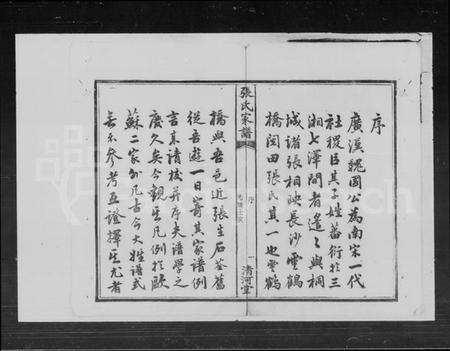 序
廣漢魏國公為南宋一代
社稷臣其子姓蕃衍於三
湘七澤間者遙〻與桐
城諸張相映長沙雲鶴
橋田張氏其一也雲鶴
張氏家譜
序
一
清河堂
橋與吾邑近張生石荃舊
從吾遊一日寄其家譜例
言來請校并序夫譜學之
廢久矣今觀生凡例於歐
蘇二家外凡古今大姓譜式
無不參考互證擇其尤者